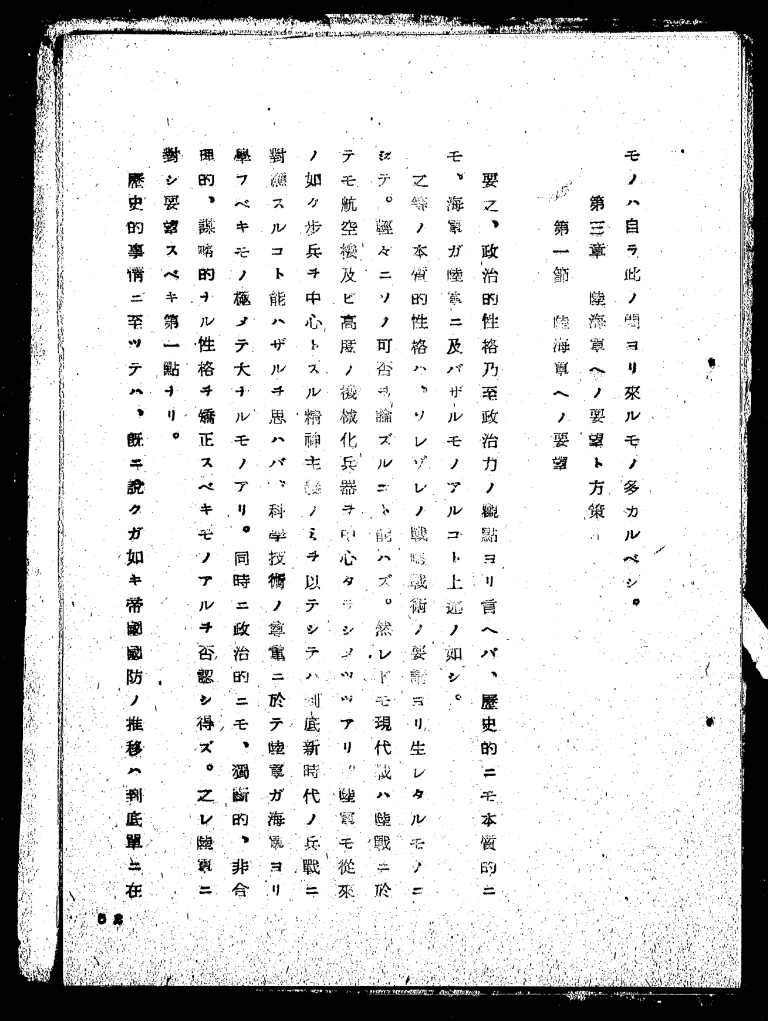 モノハ自ラ此ノ間ヨリ來ルモノ多カルベシ。
第三章 陸海軍ヘノ要望ト方策
第一節 陸海軍ヘノ要望
要之、政治的性格乃至政治力ノ觀點ヨリ言ヘバ、歷史的ニモ本質的ニ
モ、海軍ガ陸軍ニ及バザルモノアルコト上述ノ如シ。
之等ノ本質的性格ハ、ソレゾレノ戰略戰術ノ要請ヨリ生レタルモノニ
シテ。輕々ニソノ可否ヲ論ズルコト能ハズ。然レドモ現代戰ハ陸戰ニ於
テモ航空機及ビ高度ノ機械化兵器ヲ中心タラシメツツアリ。陸軍モ從來
ノ如ク步兵ヲ中心トスル精神主義ノミヲ以テシテハ到底新時代ノ兵戰ニ
對應スルコト能ハザルヲ思ハバ、科學技術ノ尊重ニ於テ陸軍ガ海軍ヨリ
學フベキモノ極メテ大ナルモノアリ。同時ニ政治的ニモ、獨斷的、非合
理的、謀略的ナル性格ヲ矯正スベキモノアルヲ否認シ得ズ。之レ陸軍ニ
對シ要望スベキ第一點ナリ。
歷史的事情ニ至ツテハ、既ニ說クガ如キ帝國國防ノ推移ハ到底單ニ在
52